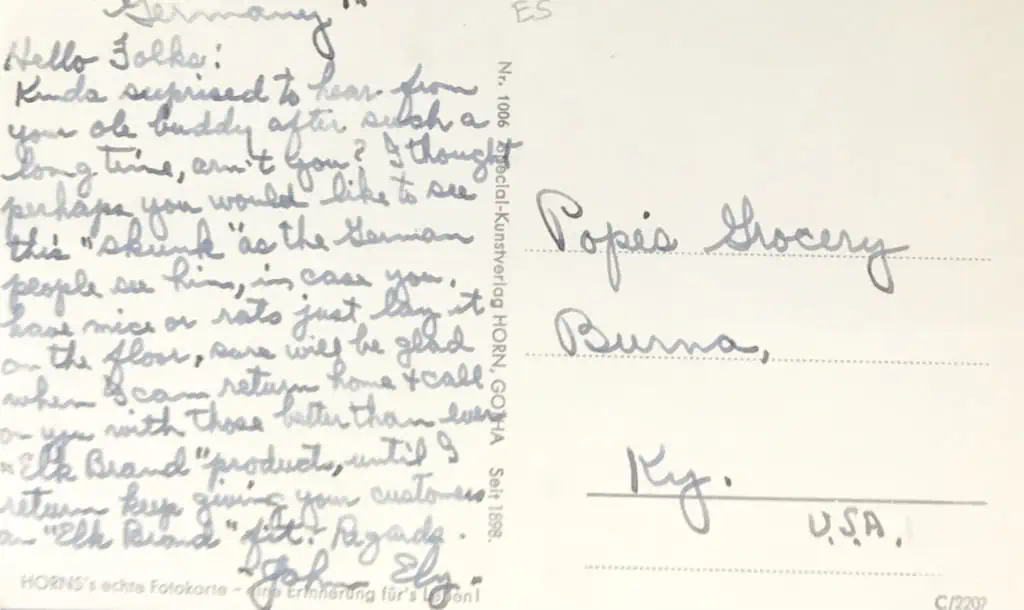 Germany"
ES
Hello Folks:
Kinda suprised to hear from
your ole buddy after such a
long time, arn't you? I thought
perhaps you would like to see
this "skunk" as the German
people see him, in case you
have mice or rats just lay it
on the floor, sure will be glad
when I can return home & call
on you with those better than ever
"Elk Brand" product, until I
return keep giving your customers
an "Elk Brand" fit. Regards.
-John Ely-
HORNS's echte Fotokarte - eine Erinnerung für's Leben!
Nr. 1006 Spezial-Kunstverlag HORN, GOTHA Seit 1898.
Pope's Grocery
Burna,
Ky.
U.S.A.
C/2202